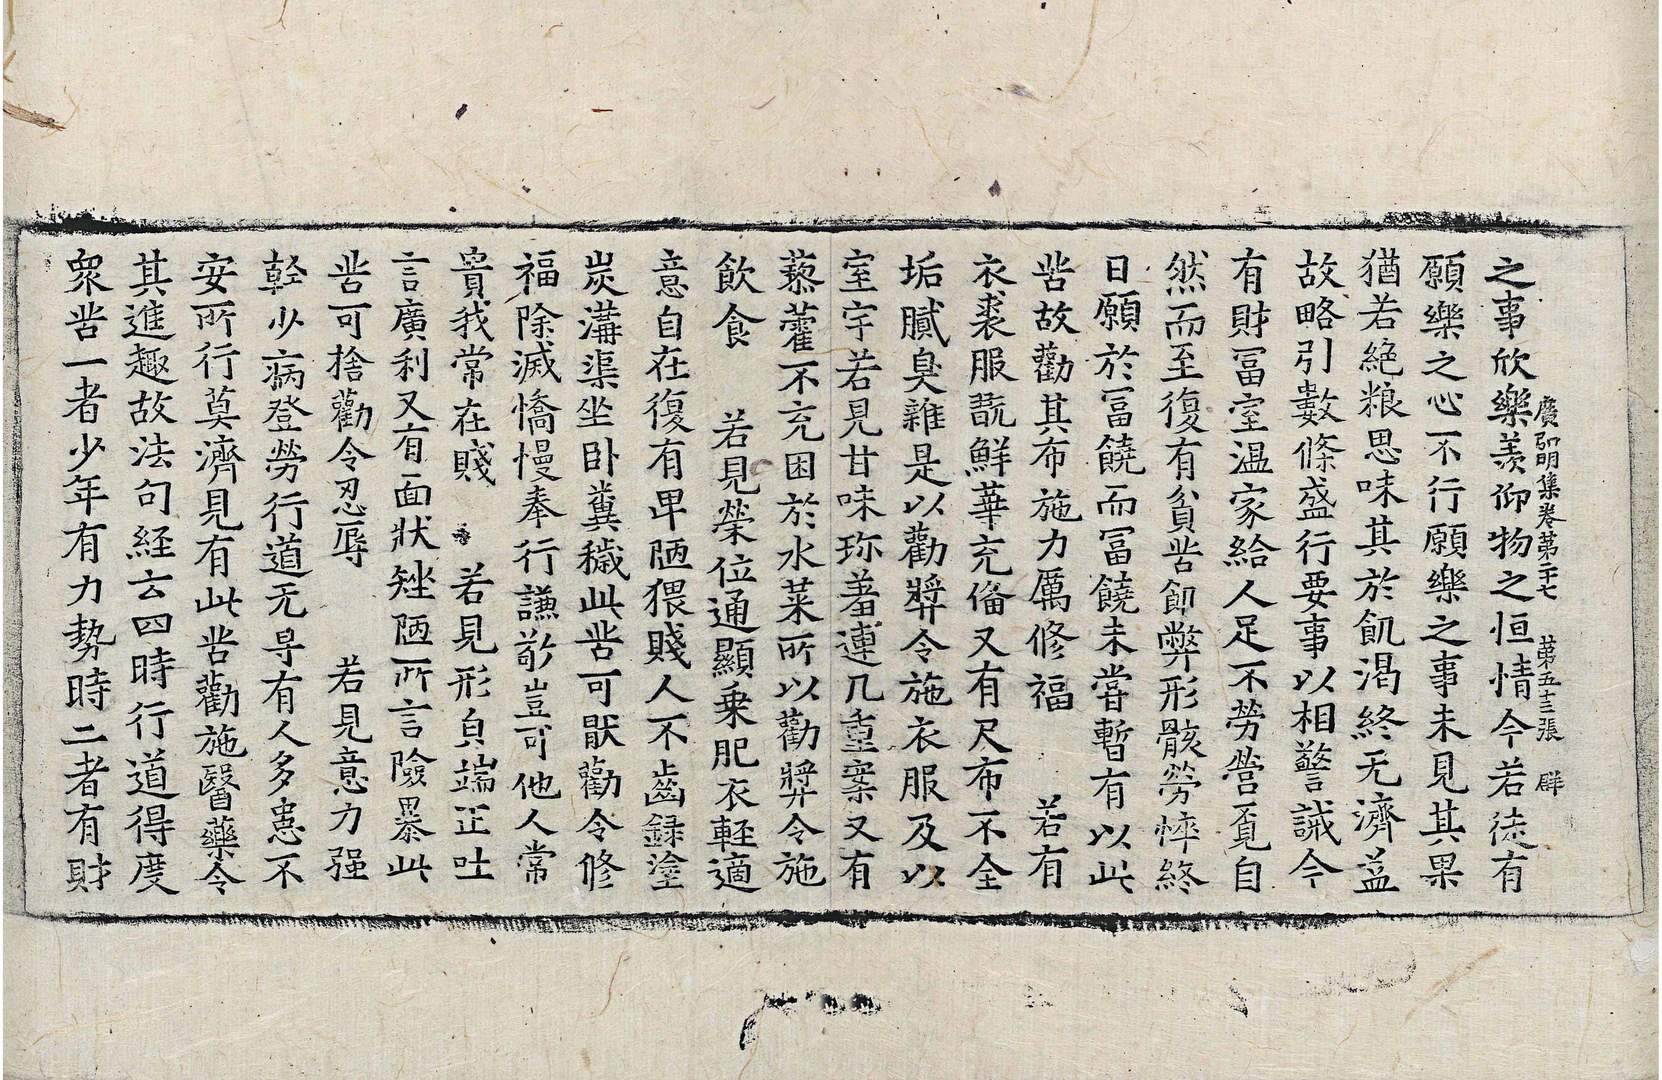 廣弘明集卷第二十七　第五十三張　群
之事欣樂羨仰物之恒情今若徒有
願樂之心不行願樂之事未見其果
猶若絶粮思味其於飢渴終无濟益
故略引數條盛行要事以相警誡今
有財冨室温家給人足不勞營覔自
然而至復有貧苦飢弊形骸勞悴終
日願於冨饒而冨饒未嘗暫有以此
苦故勸其布施力厲修福　若有
衣裘服翫鮮華充俻又有尺布不全
垢膩臭雜是以勸奬令施衣服及以
室宇若見甘味珎羞連几重案又有
藜藿不充困於水菜所以勸奬令施
飲食　若見榮位通顯乗肥衣輕適
意自在復有卑陋猥賤人不齒錄塗
炭溝渠坐卧糞穢此苦可猒勸令修
福除滅憍慢奉行謙敬豈可他人常
貴我常在賤　若見形皃端正吐
言廣利又有面狀矬陋所言險暴此
苦可捨勸令忍辱　若見意力强
幹少病登勞行道无㝵有人多患不
安所行莫濟見有此苦勸施醫藥令
其進趣故法句經云四時行道得度
衆苦一者少年有力勢時二者有財